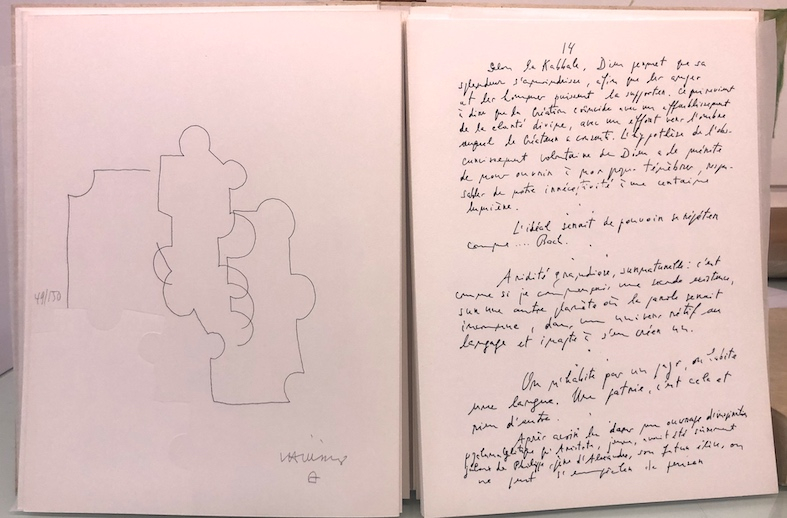 49/150
14
Selon la Kabbale, Dieu permet que sa
splendeur s'amoindrisse, afin que les anges
et les hommes puissent la supporter. Ce qui revient
à dire que la Création coïncide avec un affaiblissement
de la clarté divine, avec un effort vers l'ombre
auquel le Créateur a consenti. L'hypothèse de l'obs-
curcissement volontaire de Dieu a le mérite
de nous ouvrir à nos propres ténèbres, respon-
sables de notre irréceptivité à une certaine
lumière.
L'idéal serait de pouvoir se répéter
comme.... Bach.
Aridité grandiose, surnaturelle: c'est
comme si je commençais une seconde existence,
sur une autre planète où la parole serait
inconnue, dans un univers rétif au
langage et inapte à s'en créer un.
On n'habite pas un pays, on habite
une langue. Une patrie, c'est cela et
rien d'autre.
Après avoir lu dans un ouvrage d'inspiration
psychanalytique qu'Aristote, jeune, avait été sûrement
jaloux de Philippe, père d'Alexandre, son futur élève, on
ne peut s'empêcher de penser